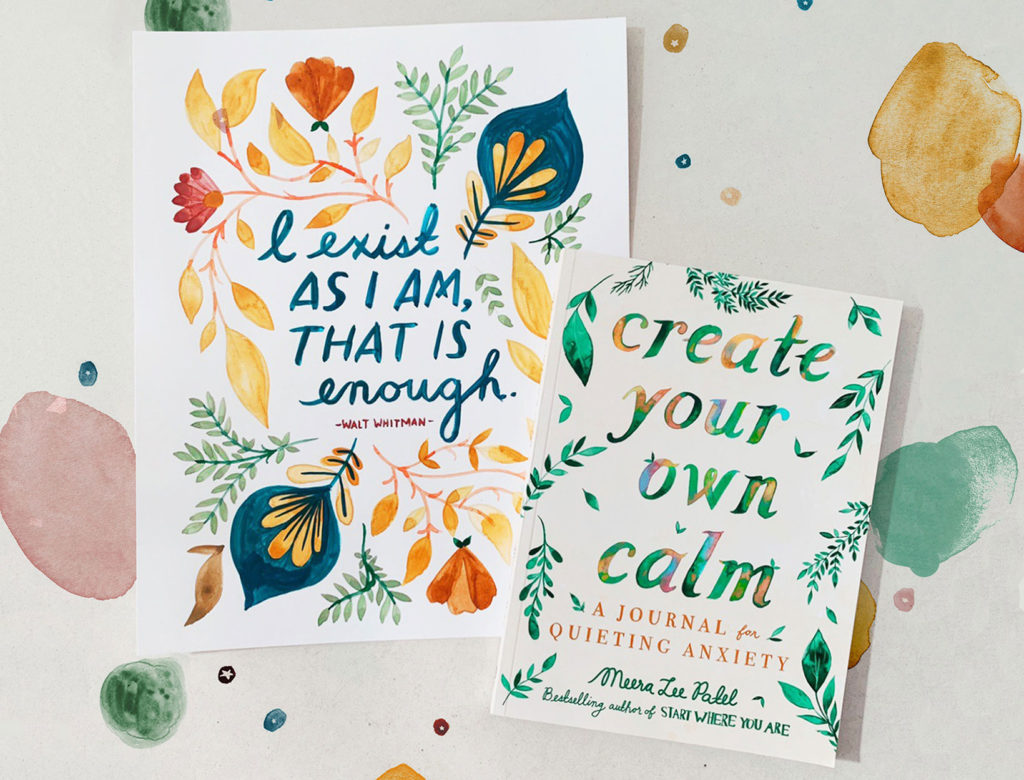 I exist
AS I AM,
THAT IS
enough.
-WALT WHITMAN-
create
your
own
calm
A JOURNAL for
QUIETING ANXIETY
Meera Lee Patel
Bestselling author of START WHERE YOU ARE